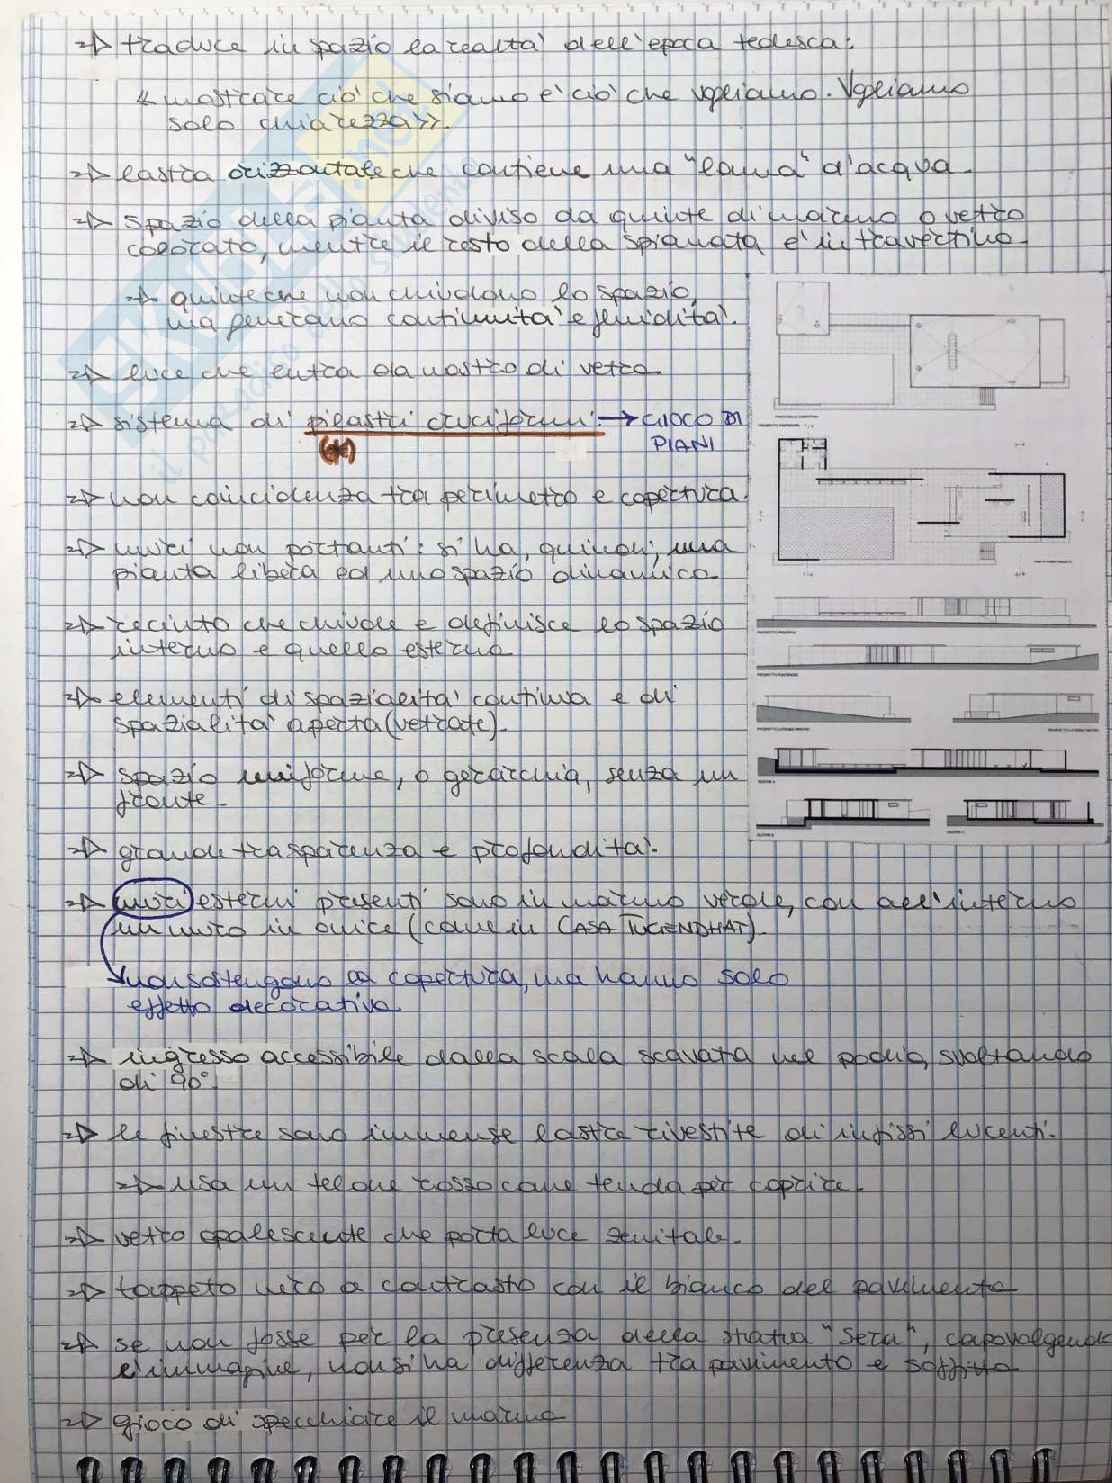 => traduce in spazio la realtà dell'epoca tedesca:
« mostrare ciò che siamo e ciò che vogliamo. Vogliamo
solo chiarezza».
=> lastra orizzontale che contiene una "lama" d'acqua.
=> spazio della pianta diviso da quinte di marmo o vetro
colorato, mentre il resto della spianata è in travertino.
-> quinte che non chiudono lo spazio,
ma generano continuità e fluidità.
=> luce che entra da nastro di vetro
=> sistema di pilastri cruciformi. → GIOCO DI
PIANI
(*)
=> non coincidenza tra perimetro e copertura.
=> muri non portanti: si ha, quindi, una
pianta libera ed uno spazio dinamico.
=> recinto che chiude e definisce lo spazio
interno e quello esterno
=> elementi di spazialità continua e di
spazialità aperta (vetrate).
=> spazio uniforme, o gerarchia, senza un
fronte.
=> grande trasparenza e profondità.
=> muri esterni presenti sono in marmo verde, con all'interno
un muro in onice (come in CASA TUGENDHAT).
non sostengono la copertura, ma hanno solo
effetto decorativo.
=> ingresso accessibile dalla scala scavata nel podio, svoltando
di 90°.
=> le finestre sono immense lastre rivestite di infissi lucenti.
=> usa un telone rosso come tenda per coprire.
=> vetro opalescente che porta luce zenitale.
=> tappeto nero a contrasto con il bianco del pavimento
=> se non fosse per la presenza della statua "Sera", capovolgendo
l'immagine, non si ha differenza tra pavimento e soffitto
=> gioco di specchiare il marmo